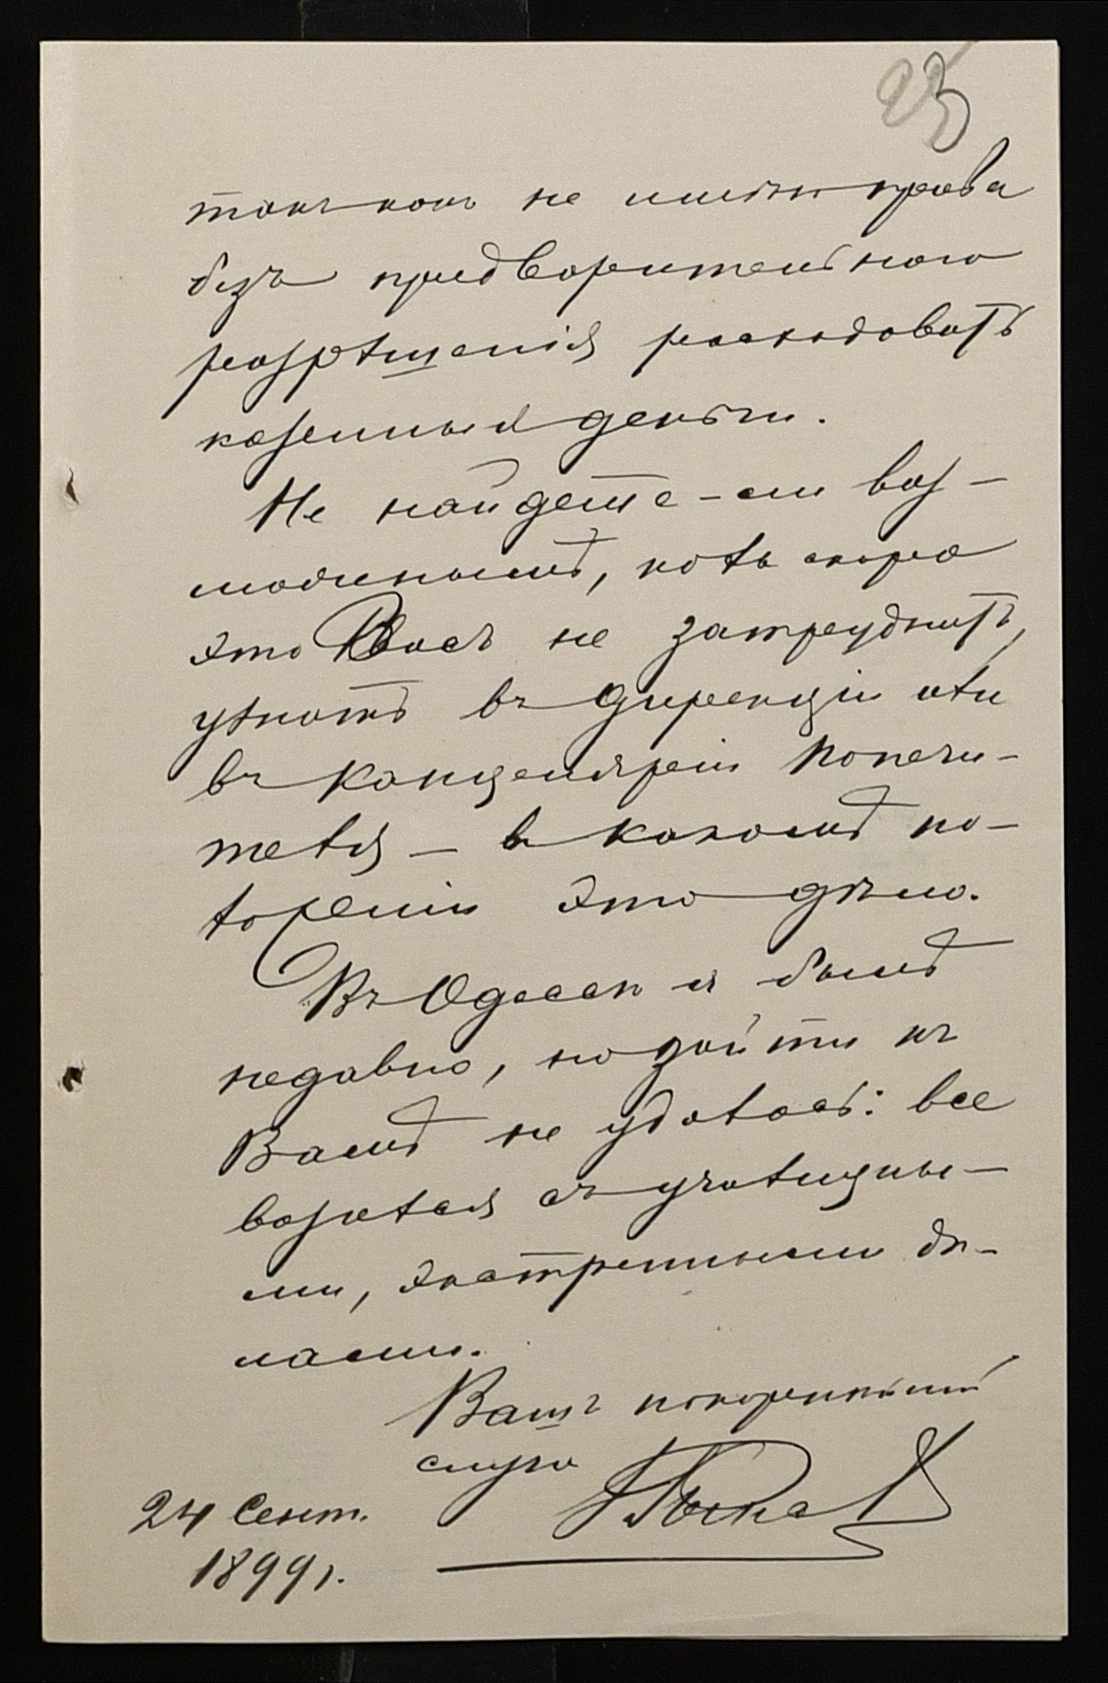 23
такъ какъ не имѣю права
безъ предварительнаго
разрѣшенія расходовать
казенныя деньги.
Не найдете-ли воз-
можнымъ, коль скоро
это Васъ не затруднитъ,
узнать въ Дирекціи или
въ Канцеляріи Попечи-
теля — въ какомъ по-
ложеніи это дѣло.
Въ Одессѣ я былъ
недавно, но зайти къ
Вамъ не удалось: все
возился съ училищны-
ми, экстренными дѣ-
лами.
Вашъ покорнѣйшій
слуга
24 Сент.
1899 г.